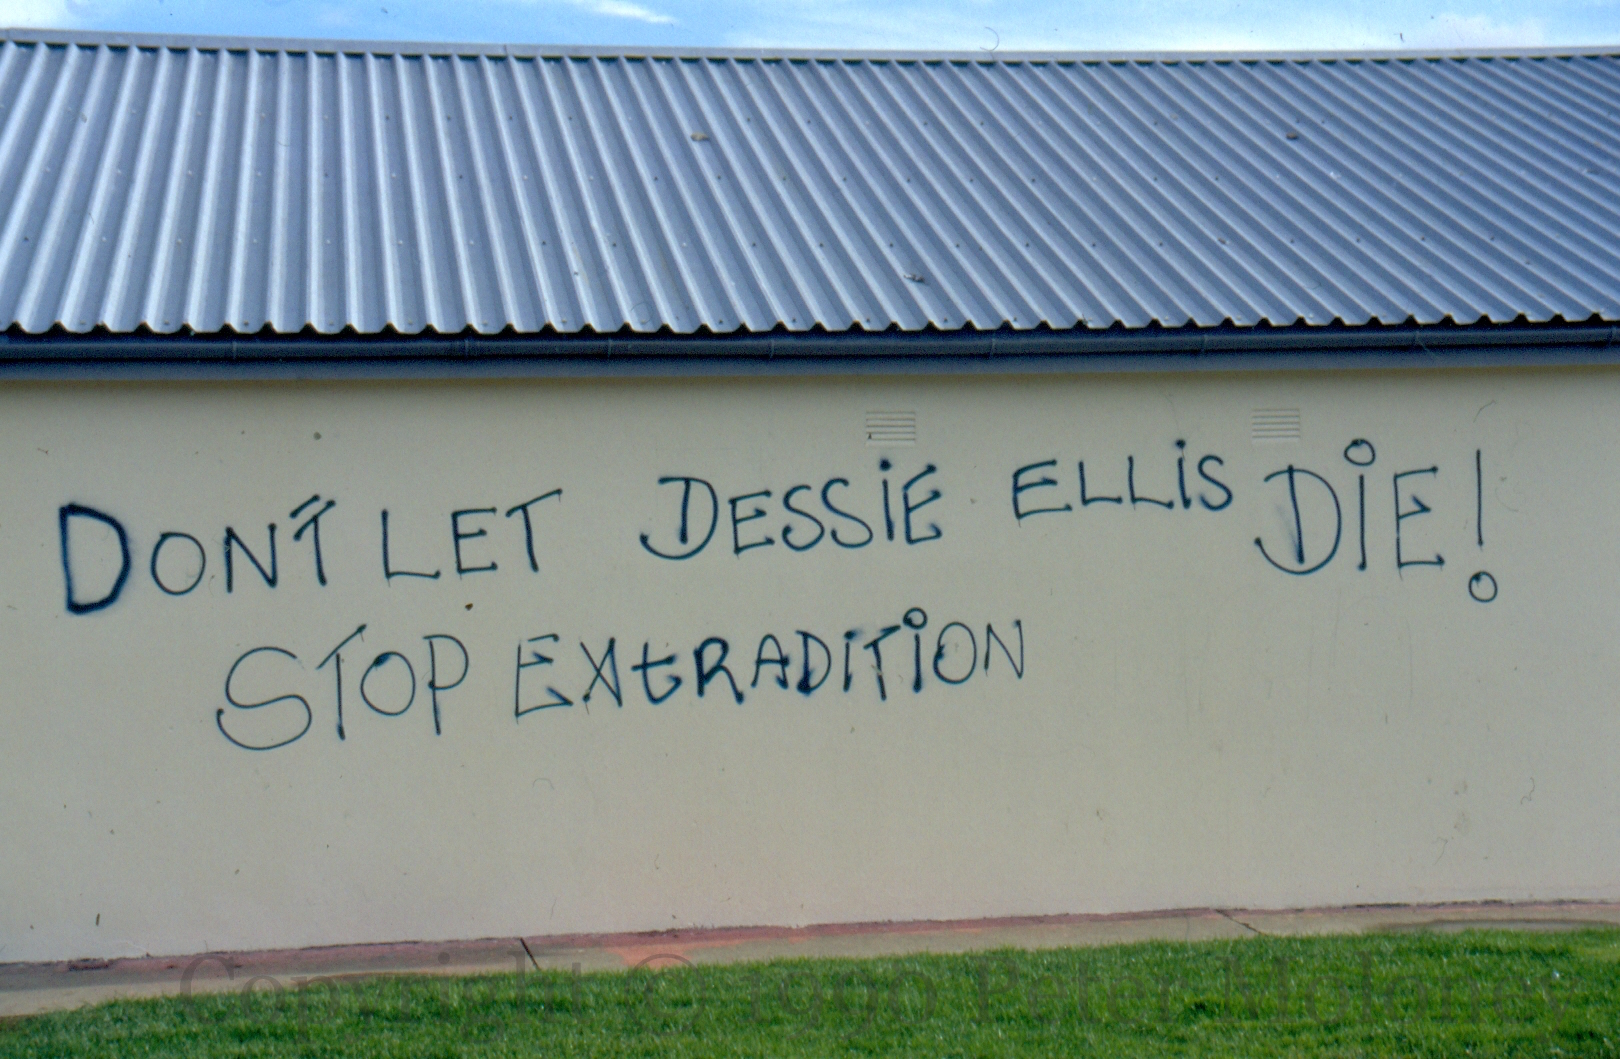 DON'T LET DESSIE ELLIS DIE!
STOP EXtRADITION
Copyright © 1990 Peter Moloney